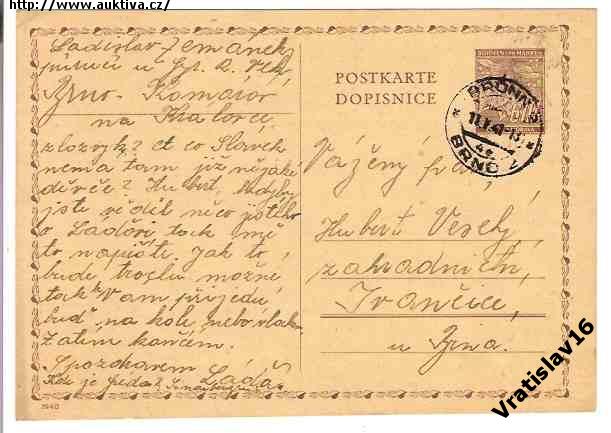 http://www.auktiva.cz/
Ladislav Zemánek,
Brno - Komárov
na
zlozvyk? et co Slávek
nemá tam již nějaké
děvče? Hubert, kdyby
jste věděl něco jistého
o Laďovi tock mě
to napište. Jak to
bude trochu možné
tock k Vám přijedu
buď na kole nebo vlakem.
Zatím končím.
S pozdravem Láďa
Kde je
1940
POSTKARTE
DOPISNICE
BÖHMEN UND MÄHREN
BRÜNN 2
BRNO 2
Vážený pan,
Hubert Veselý,
zahradník,
Ivančice,
u Brna.
Vratislav16